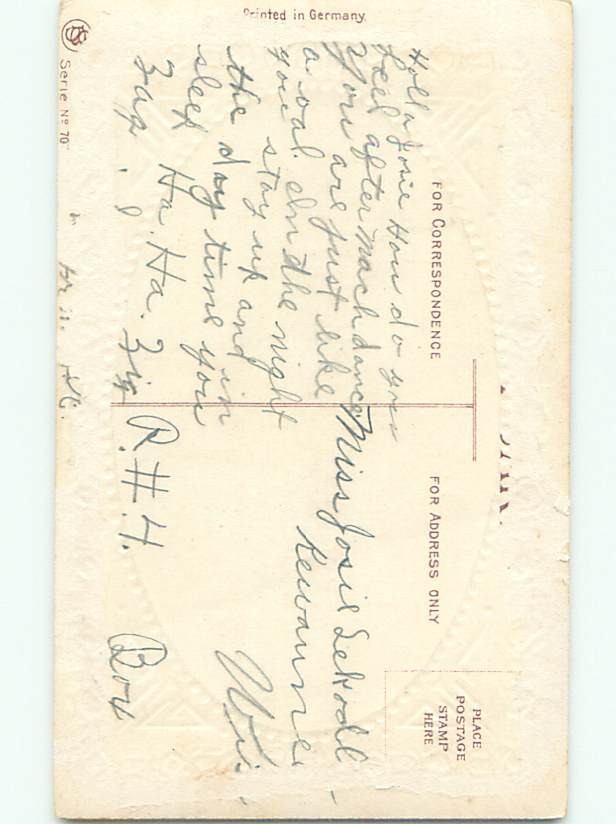 Printed in Germany.
Serie No 70
FOR CORRESPONDENCE
Hollo Josie How do you
feel after mach dance
You are just like
a oal. In the night
you stay up and
the day time you
in
sleep Ha. Ha. Zig
Zag.
FOR ADDRESS ONLY
PLACE
POSTAGE
STAMP
HERE
Miss Josie
Kewaunee
Wis.
R.#.4. Box